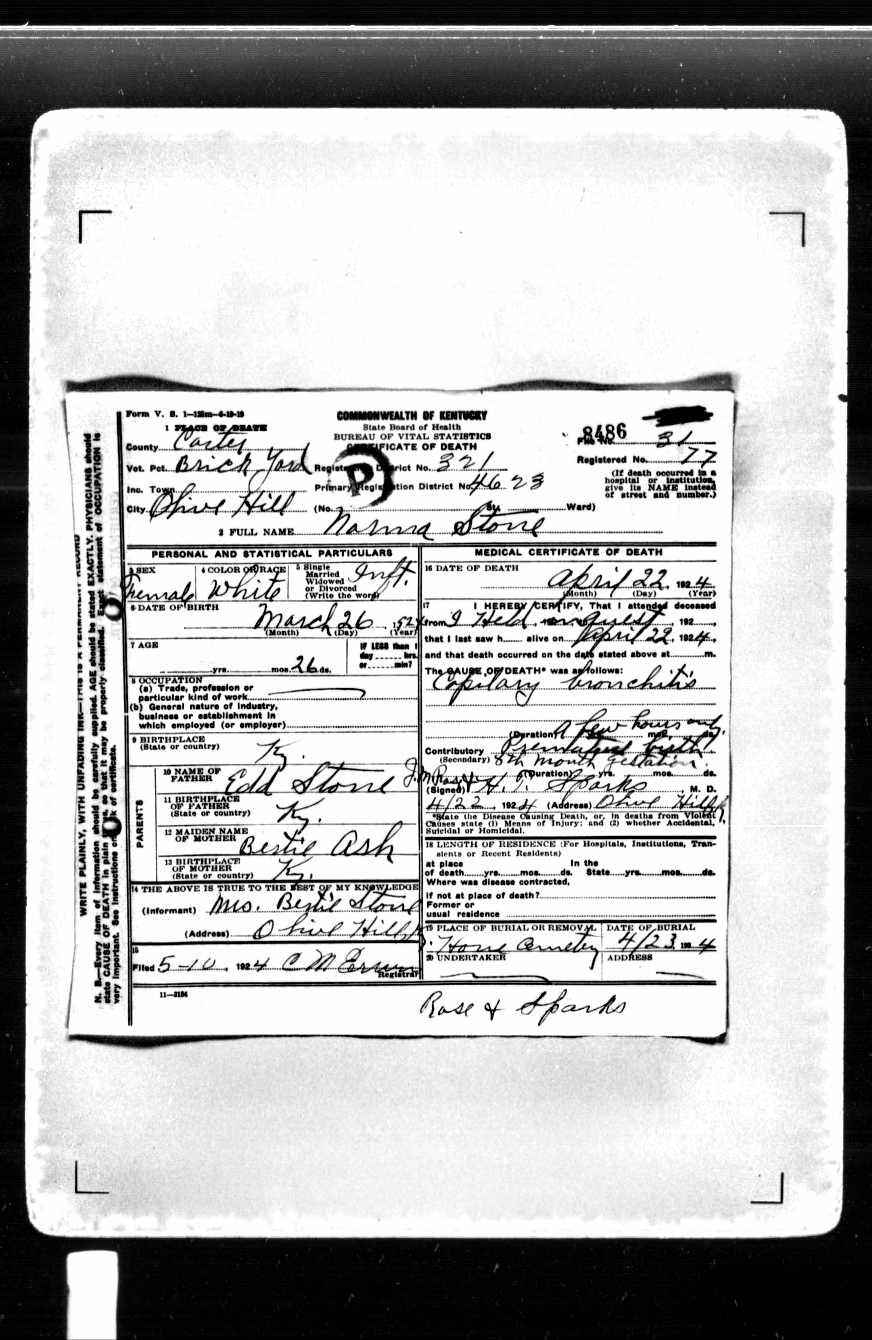 Form V. S. 1—125m—6-19-19
COMMONWEALTH OF KENTUCKY
State Board of Health
BUREAU OF VITAL STATISTICS
CERTIFICATE OF DEATH
1 PLACE OF DEATH
County Carter
Vot. Pct. Brick Yard
Inc. Town
City Olive Hill
Registration District No. 321
Primary Registration District No. 4623
(No. St., Ward)
P
File No. 8486
31
Registered No. 77
(If death occurred in a
hospital or institution,
give its NAME instead
of street and number.)
2 FULL NAME Norma Stone
PERSONAL AND STATISTICAL PARTICULARS
3 SEX Female
4 COLOR OR RACE White
5 Single
Married
Widowed
or Divorced
(Write the word) Inft.
6 DATE OF BIRTH
March 26, 1924
(Month) (Day) (Year)
7 AGE
yrs. mos. 26 ds.
IF LESS than 1
day hrs.
or min?
8 OCCUPATION
(a) Trade, profession or
particular kind of work
(b) General nature of industry,
business or establishment in
which employed (or employer)
9 BIRTHPLACE
(State or country) Ky.
PARENTS
10 NAME OF
FATHER Edd Stone
11 BIRTHPLACE
OF FATHER
(State or country) Ky.
12 MAIDEN NAME
OF MOTHER Bertie Ash
13 BIRTHPLACE
OF MOTHER
(State or country) Ky.
14 THE ABOVE IS TRUE TO THE BEST OF MY KNOWLEDGE
(Informant) Mrs. Bertie Stone
(Address) Olive Hill Ky.
15
Filed 5-10, 1924 C M Erwin
Registrar
11—3184
MEDICAL CERTIFICATE OF DEATH
16 DATE OF DEATH
April 22 1924
(Month) (Day) (Year)
17 I HEREBY CERTIFY, That I attended deceased
from I Held, an inquest, 192
that I last saw h alive on April 22, 1924,
and that death occurred on the date stated above at m.
The CAUSE OF DEATH* was as follows:
Capilary bronchitis
(Duration) A few hours and mos. ds.
Contributory Premature birth
(Secondary) 8th month gestation.
(Duration) yrs. mos. ds.
J. M Rose &
(Signed) H. T. Sparks M. D.
4/22, 1924 (Address) Olive Hill Ky.
*State the Disease Causing Death, or, in deaths from Violent
Causes state (1) Means of Injury; and (2) whether Accidental,
Suicidal or Homicidal.
18 LENGTH OF RESIDENCE (For Hospitals, Institutions, Tran-
sients or Recent Residents)
At place In the
of death yrs. mos. ds. State yrs. mos. ds.
Where was disease contracted,
if not at place of death?
Former or
usual residence
19 PLACE OF BURIAL OR REMOVAL
Home Cemetery
DATE OF BURIAL
4/23, 1924
20 UNDERTAKER
ADDRESS
Rose & Sparks
WRITE PLAINLY, WITH UNFADING INK—THIS IS A PERMANENT RECORD
N. B.—Every item of information should be carefully supplied. AGE should be stated EXACTLY. PHYSICIANS should
state CAUSE OF DEATH in plain so that it may be properly classified. Exact statement of OCCUPATION is
very important. See instructions on back of certificate.